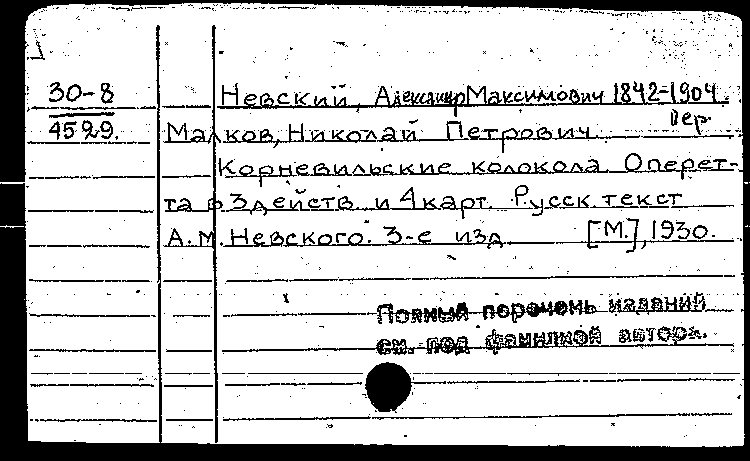 30-8
4529.
Невский, Александр Максимович 1842-1904.
пер.
Малков, Николай Петрович
Корневильские колокола. Оперет-
та в 3 действ. и 4 карт. Русск. текст
А.М. Невского. 3-е изд. [М.], 1930.
Полный перечень изданий
см. под фамилией автора.